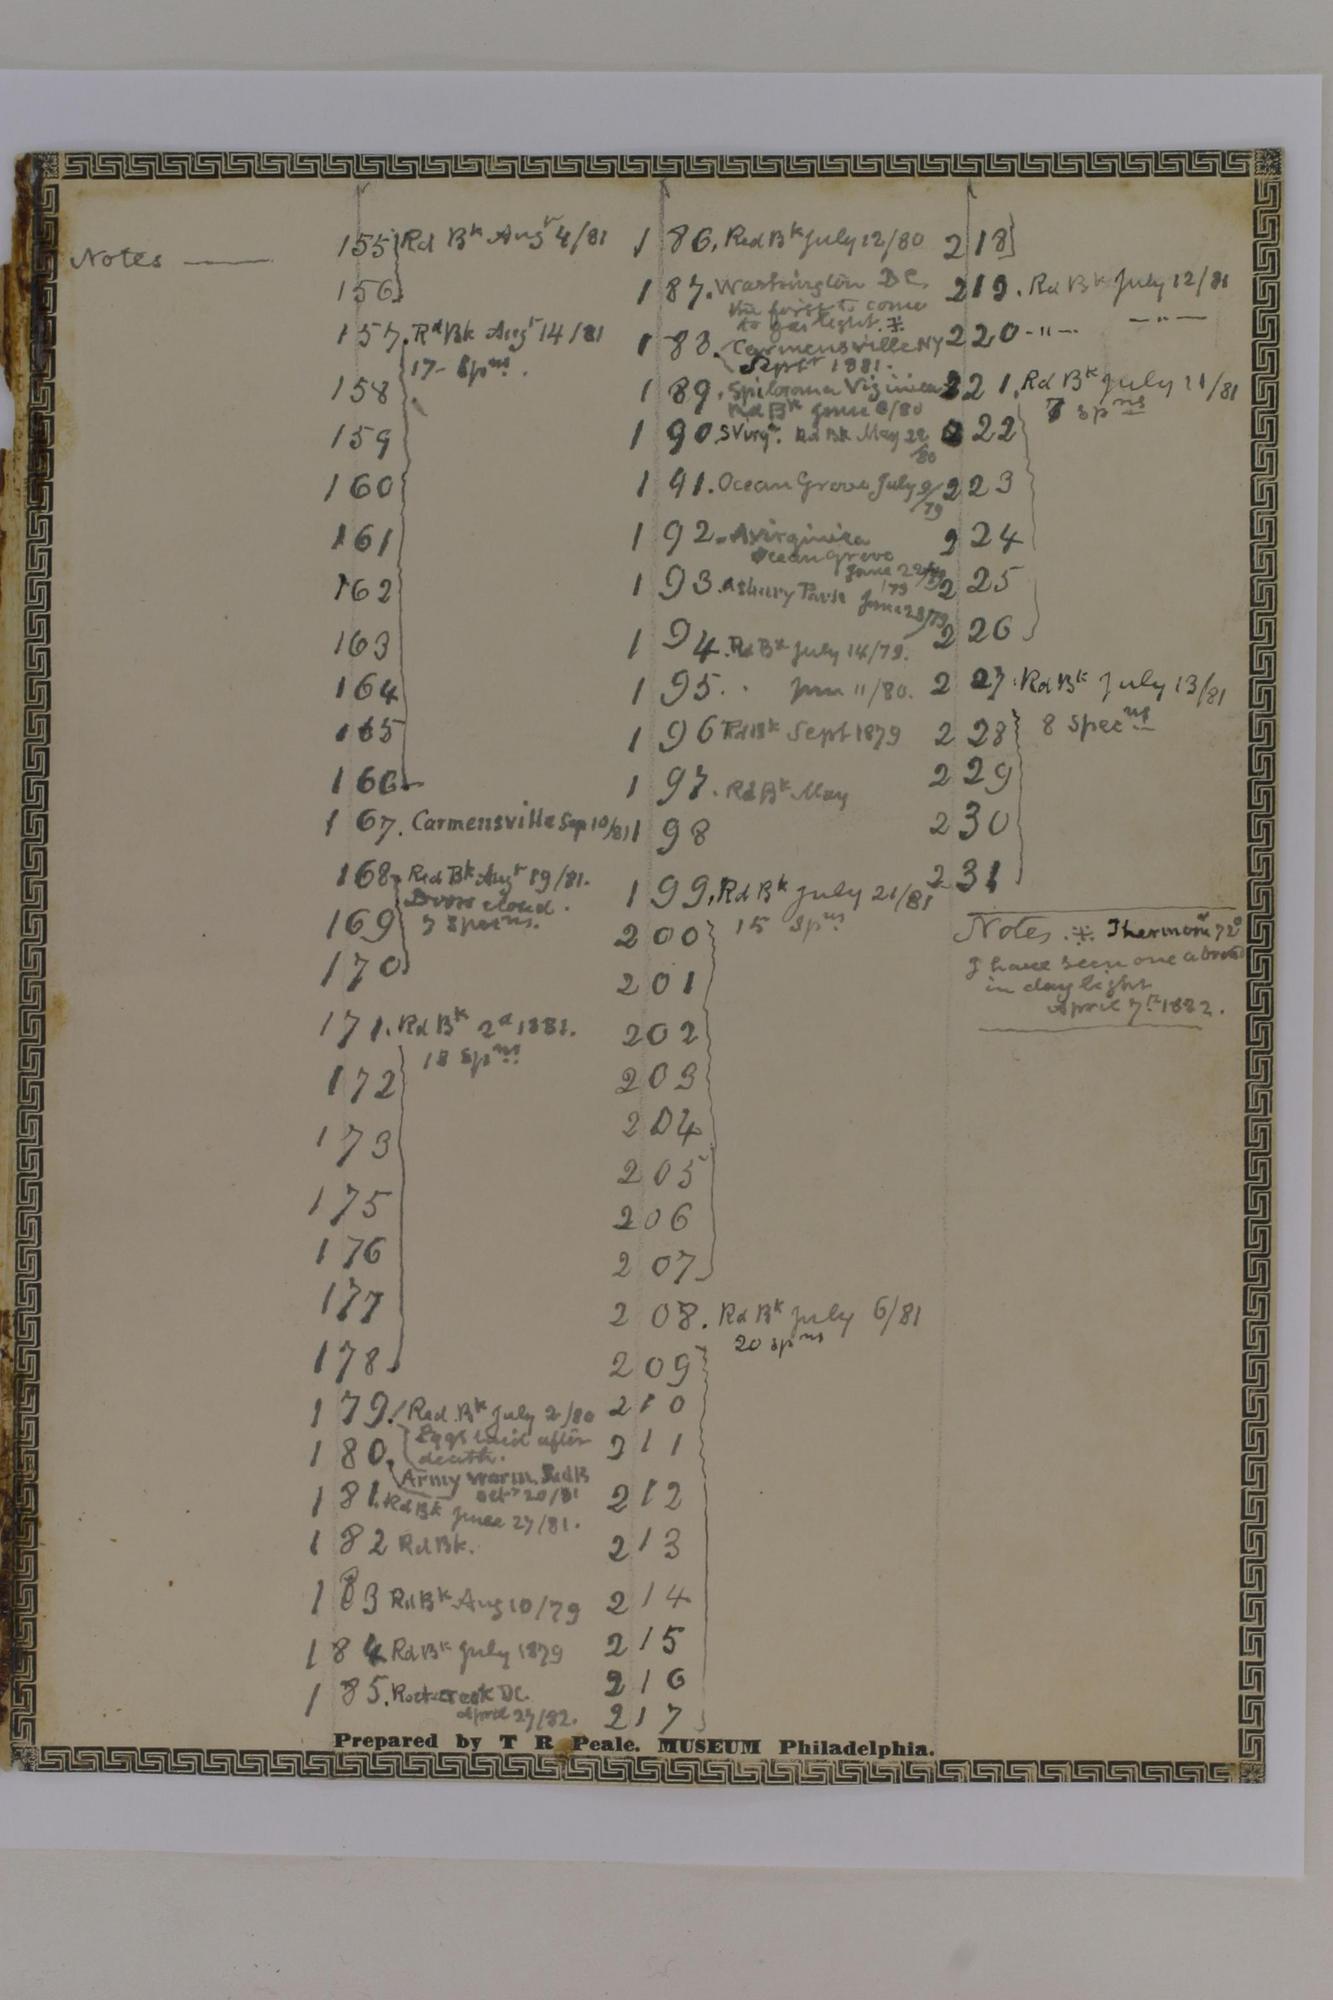 Notes
155 Rd Bk Augt 4/81
156
157. Rd Bk Augt 14/81
17 Spms.
158
159
160
161
162
163
164
165
166
167. Carmensville Sep 10/81
168. Rd Bk Augt 19/81.
169
3 Specms.
170
171. Rd Bk 2d 1881.
18 Spms
172
173
175
176
177
178
179. Red Bk July 2/80
180. Eggs laid after
death.
Army worm. Rd B
Oct 20/81
181. Rd Bk June 27/81.
182 Rd Bk.
183 Rd Bk Aug 10/79
184 Rd Bk July 1879
185. Rock Creek DC.
April 27/82.
186. Red Bk July 12/80
187. Washington DC,
the first to come
to gas light. ※
188. Carmensville NY
Sept 1881
189. Spilosoma Virginica
Rd Bk June /80
190. S Virg. Rd Bk May 22
80
191. Ocean Grove July
79
192. A virginica
Ocean Grove
June 22/79
193. Asbury Park June 28/79
194. Rd Bk July 14/79.
195. June 11/80.
196 Rd Bk Sept 1879
197. Rd Bk May
198
199. Rd Bk July 21/81
15 Spms
200
201
202
203
204
205
206
207
208. Rd Bk July 6/81
20 spms
209
210
211
212
213
214
215
216
217
218
219. Rd Bk July 12/81
220 - " - - " -
221. Rd Bk July 11/81
spms
222
223
224
225
226
227. Rd Bk July 13/81
8 Specms
228
229
230
231
Notes. ※ Thermom 72°
I have seen one abroad
in day light
April 7th 1882.
Prepared by T R Peale. MUSEUM Philadelphia.